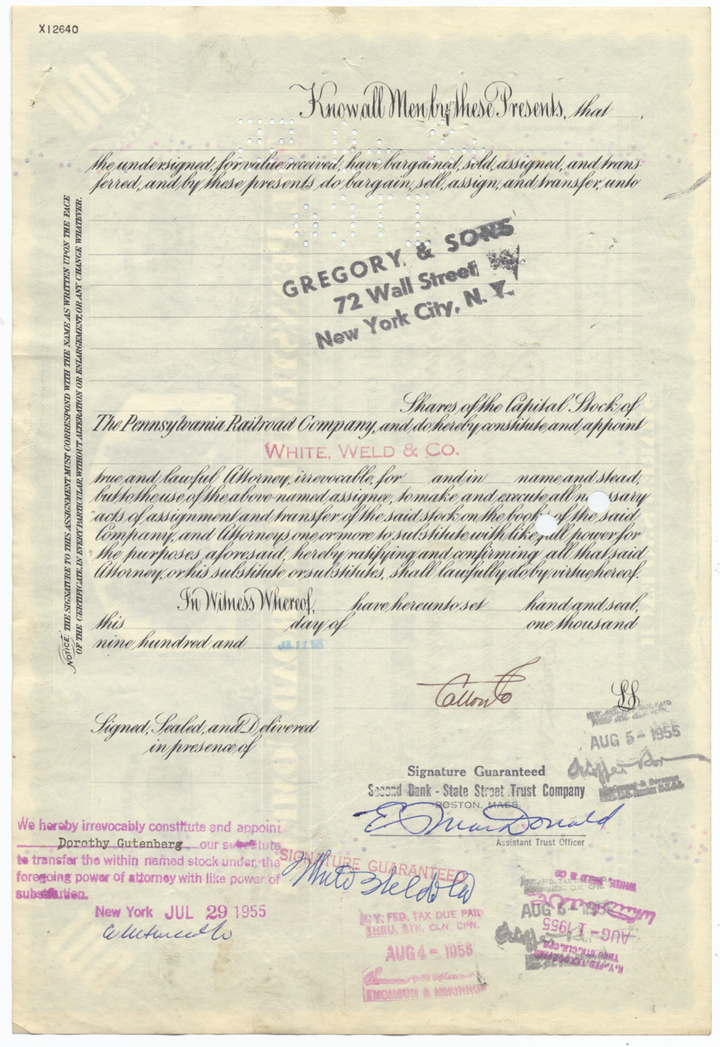 X12640
Know all Men by these Presents, that
the undersigned, for value received, have bargained, sold, assigned, and trans
ferred, and by these presents, do bargain, sell, assign, and transfer, unto
GREGORY & SONS
72 Wall Street
New York City, N. Y.
Shares of the Capital Stock of
The Pennsylvania Railroad Company, and do hereby constitute and appoint
WHITE, WELD & CO.
true and lawful Attorney, irrevocable, for and in name and stead,
but to the use of the above named assignee, to make and execute all necessary
acts of assignment and transfer of the said stock on the books of the said
Company, and Attorneys one or more to substitute with like full power, for
the purposes aforesaid, hereby ratifying and confirming all that said
Attorney, or his substitute or substitutes, shall lawfully do by virtue hereof.
In Witness Whereof, have hereunto set hand and seal,
this day of one thousand
nine hundred and
L.S.
Signed, Sealed, and Delivered
in presence of
NOTICE: THE SIGNATURE TO THIS ASSIGNMENT MUST CORRESPOND WITH THE NAME AS WRITTEN UPON THE FACE
OF THE CERTIFICATE, IN EVERY PARTICULAR, WITHOUT ALTERATION OR ENLARGEMENT, OR ANY CHANGE WHATEVER.
AUG 5 - 1955
Signature Guaranteed
Second Bank - State Street Trust Company
BOSTON, MASS.
E. MacDonald
Assistant Trust Officer
We hereby irrevocably constitute and appoint
Dorothy Gutenberg our substitute
to transfer the within named stock under the
foregoing power of attorney with like power of
substitution.
New York JUL 29 1955
SIGNATURE GUARANTEED
White Weld & Co
N. Y. FED. TAX DUE PAID
THRU. STK. CLN. CPN.
AUG 4 - 1955
THOMSON & MCKINNON
WHITE, WELD & CO
AUG 5 - 1955
AUG - 1 1955
N.Y. FED. TAX DUE PAID
THRU STK. CLN. CPN.